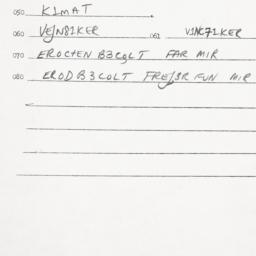 050 K1MAT
060 VEJN81KER 061 V1NC71KER
070 EROCTEN B3COLT FAR MIR
080 EROD B3COLT FREJ3R FUN MIR